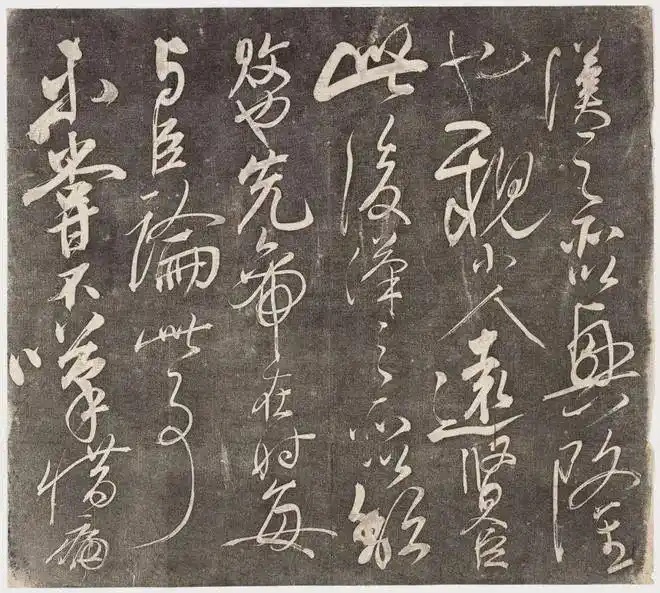 漢之所以興隆
也親小人遠賢臣
此後漢之所以傾
敗也先帝在時每
与臣論此事
未嘗不嘆惜痛